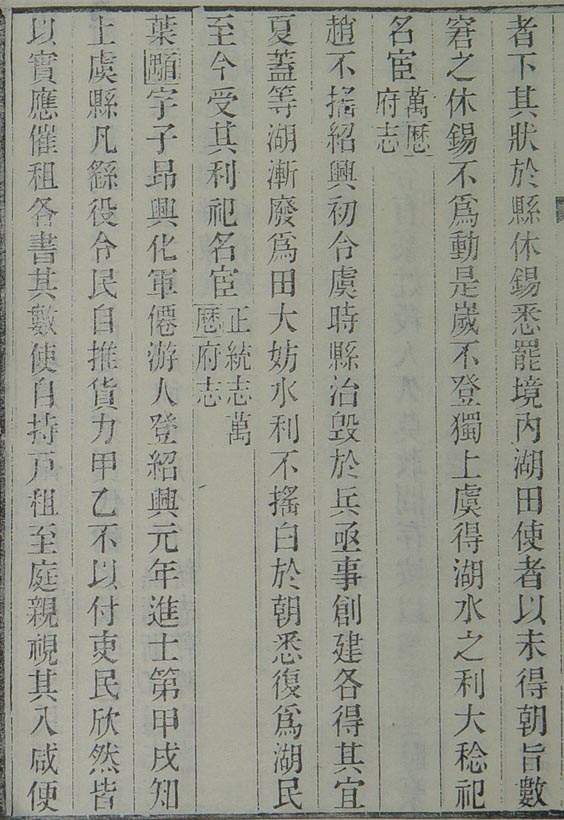 者下其狀於縣休錫悉罷境內湖田使者以未得朝旨數
窘之休錫不爲動是歲不登獨上虞得湖水之利大稔祀
名宦萬曆府志
趙不搖紹興初令虞時縣治毀於兵亟事創建各得其宜
夏蓋等湖漸廢爲田大妨水利不搖白於朝悉復爲湖民
至今受其利祀名宦正統志萬曆府志
葉顒字子昂興化軍僊游人登紹興元年進士第甲戌知
上虞縣凡繇役令民自推貨力甲乙不以付吏民欣然皆
以實應催租各書其數使自持戶租至庭親視其入咸便